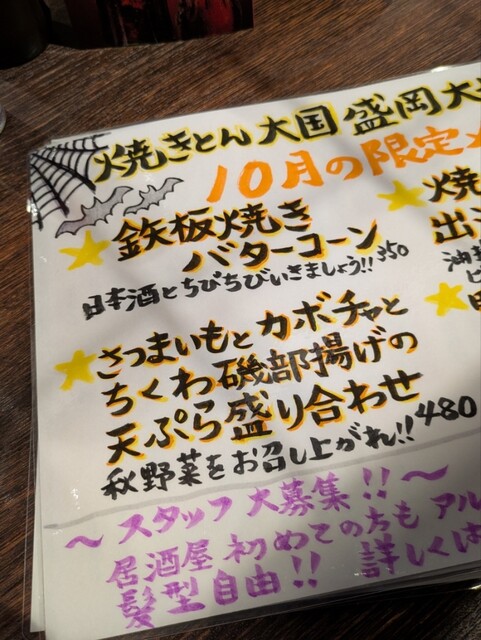 焼きとん大国 盛岡大
10月の限定
鉄板焼き
バターコーン
日本酒とちびちびいきましょう!! 350
さつまいもと カボチャと
ちくわ磯部揚げの
天ぷら盛り合わせ
秋野菜をお召し上がれ!! 480
焼
出
油
ビ
〜スタッフ大募集!!〜
居酒屋 初めての方も アル
髪型自由!! 詳しくは